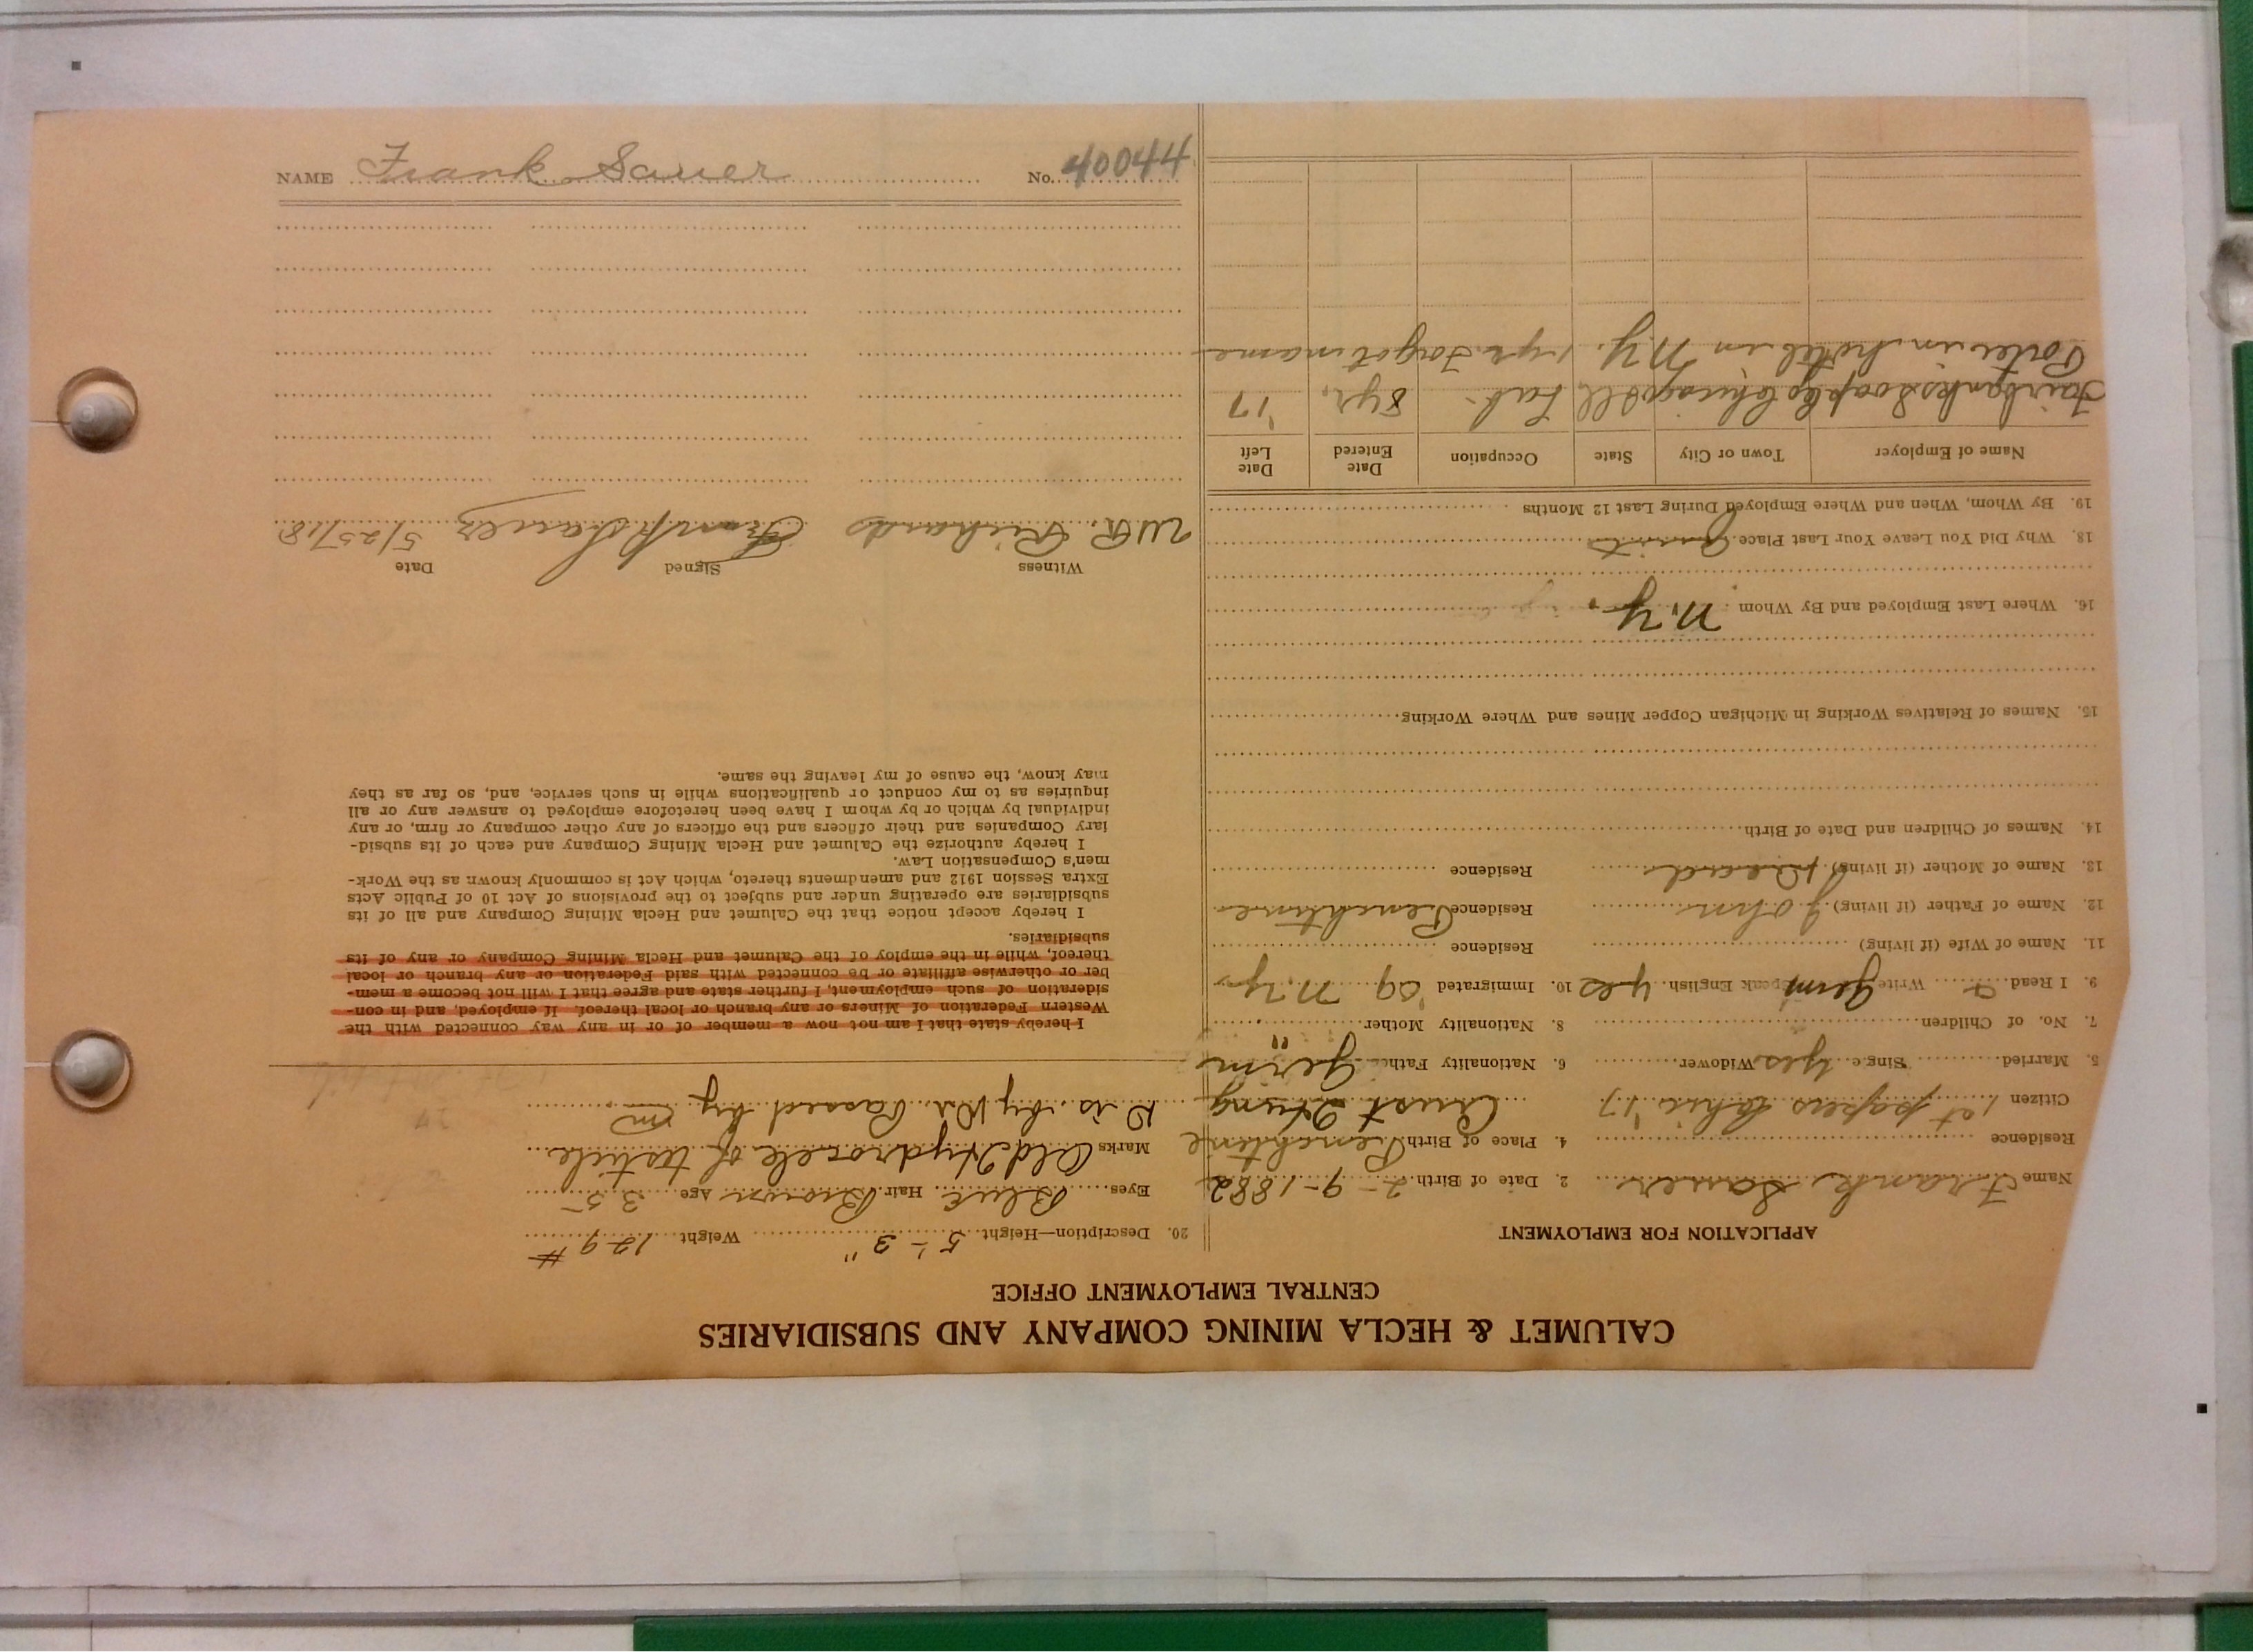 NAME Frank Sauer No. 40044
CALUMET & HECLA MINING COMPANY AND SUBSIDIARIES
CENTRAL EMPLOYMENT OFFICE
APPLICATION FOR EMPLOYMENT
Name Frank Sauer 2. Date of Birth 2-9-1882
Residence 4. Place of Birth
Citizen 1st papers '17 Aust Hung
5. Married Single yes Widower 6. Nationality Father Germ
7. No. of Children 8. Nationality Mother "
9. I Read Write Germ Speak English yes 10. Immigrated '09 N.Y.
11. Name of Wife (if living) Residence
12. Name of Father (if living) John Residence
13. Name of Mother (if living) Dead Residence
14. Names of Children and Date of Birth
15. Names of Relatives Working in Michigan Copper Mines and Where Working
16. Where Last Employed and By Whom N.Y.
18. Why Did You Leave Your Last Place Quit
19. By Whom, When and Where Employed During Last 12 Months
Name of Employer Town or City State Occupation Date Entered Date Left
Fairbanks Soap Co Chicago Ill Lab. 8 yr. '17
Porter in hotel in N.Y. 1 yr. Forgot name
20. Description—Height 5'-3" Weight 129 #
Eyes Blue Hair Brown Age 35
Marks Old Hydrocele of testicle
Passed by
I hereby state that I am not now a member of or in any way connected with the
Western Federation of Miners or any branch or local thereof. If employed, and in con-
sideration of such employment, I further state and agree that I will not become a mem-
ber or otherwise affiliate or be connected with said Federation or any branch or local
thereof, while in the employ of the Calumet and Hecla Mining Company or any of its
subsidiaries.
I hereby accept notice that the Calumet and Hecla Mining Company and all of its
subsidiaries are operating under and subject to the provisions of Act 10 of Public Acts
Extra Session 1912 and amendments thereto, which Act is commonly known as the Work-
men's Compensation Law.
I hereby authorize the Calumet and Hecla Mining Company and each of its subsid-
iary Companies and their officers and the officers of any other company or firm, or any
individual by which or by whom I have been heretofore employed to answer any or all
inquiries as to my conduct or qualifications while in such service, and, so far as they
may know, the cause of my leaving the same.
Witness Signed Date
W.R. Richards Frank Sauer 5/25/18